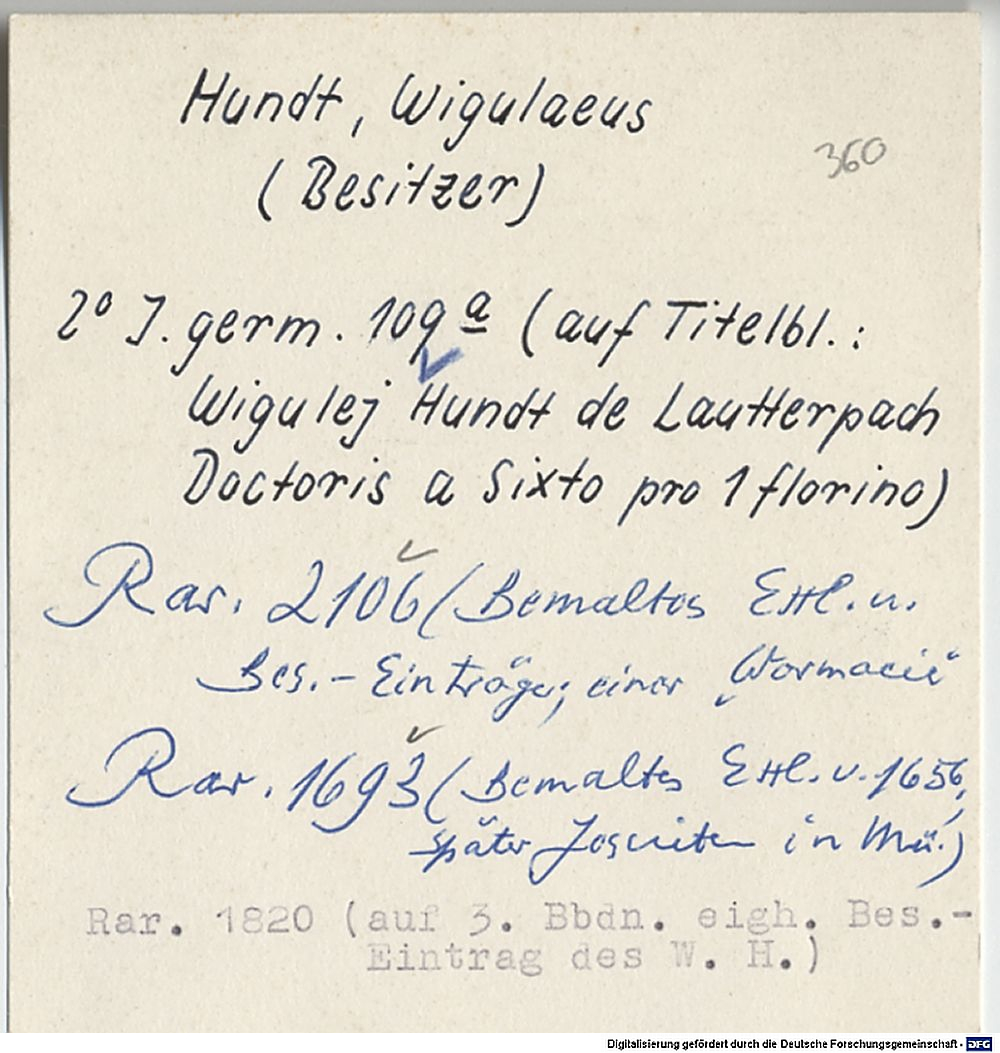 Hundt, Wigulaeus
360
(Besitzer)
2° J. germ. 109 a (auf Titelbl.:
Wigulej Hundt de Lautterpach
Doctoris a Sixto pro 1 florino)
Rar. 2106 (Bemaltes Exl. u.
Bes.-Einträge, einer „Wormacie“
Rar. 1693 (Bemaltes Exl. v. 1656,
später Jesuiten in Mü.)
Rar. 1820 (auf 3. Bbdn. eigh. Bes.-
Eintrag des W. H.)
Digitalisierung gefördert durch die Deutsche Forschungsgemeinschaft - DFG